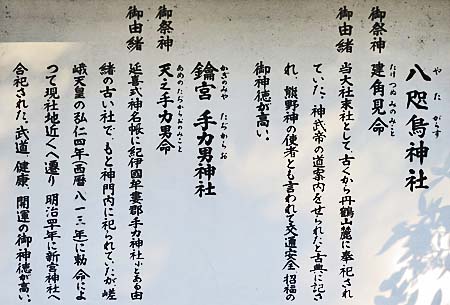 八咫烏神社
や た がらす
御祭神 建角見命
たけつのみのみこと
御由緒 当大社末社として、古くから丹鶴山麓に奉祀され
ていた。神武帝の道案内をせられたと古典に記さ
れ、熊野神の使者とも言われて交通安全、招福の
御神徳が高い。
鑰宮 手力男神社
かぎのみや たぢからお
御祭神 天之手力男命
あめのたぢからおのみこと
御由緒 延喜式神名帳に紀伊國牟婁郡手力神社とある由
緒の古い社で、もと神門内に祀られていたが、嵯
峨天皇の弘仁四年(西暦八一三年)に勅命によ
つて現社地近くへ遷り 明治四年に新宮神社へ
合祀された。武道、健康、開運の御神徳が高い。